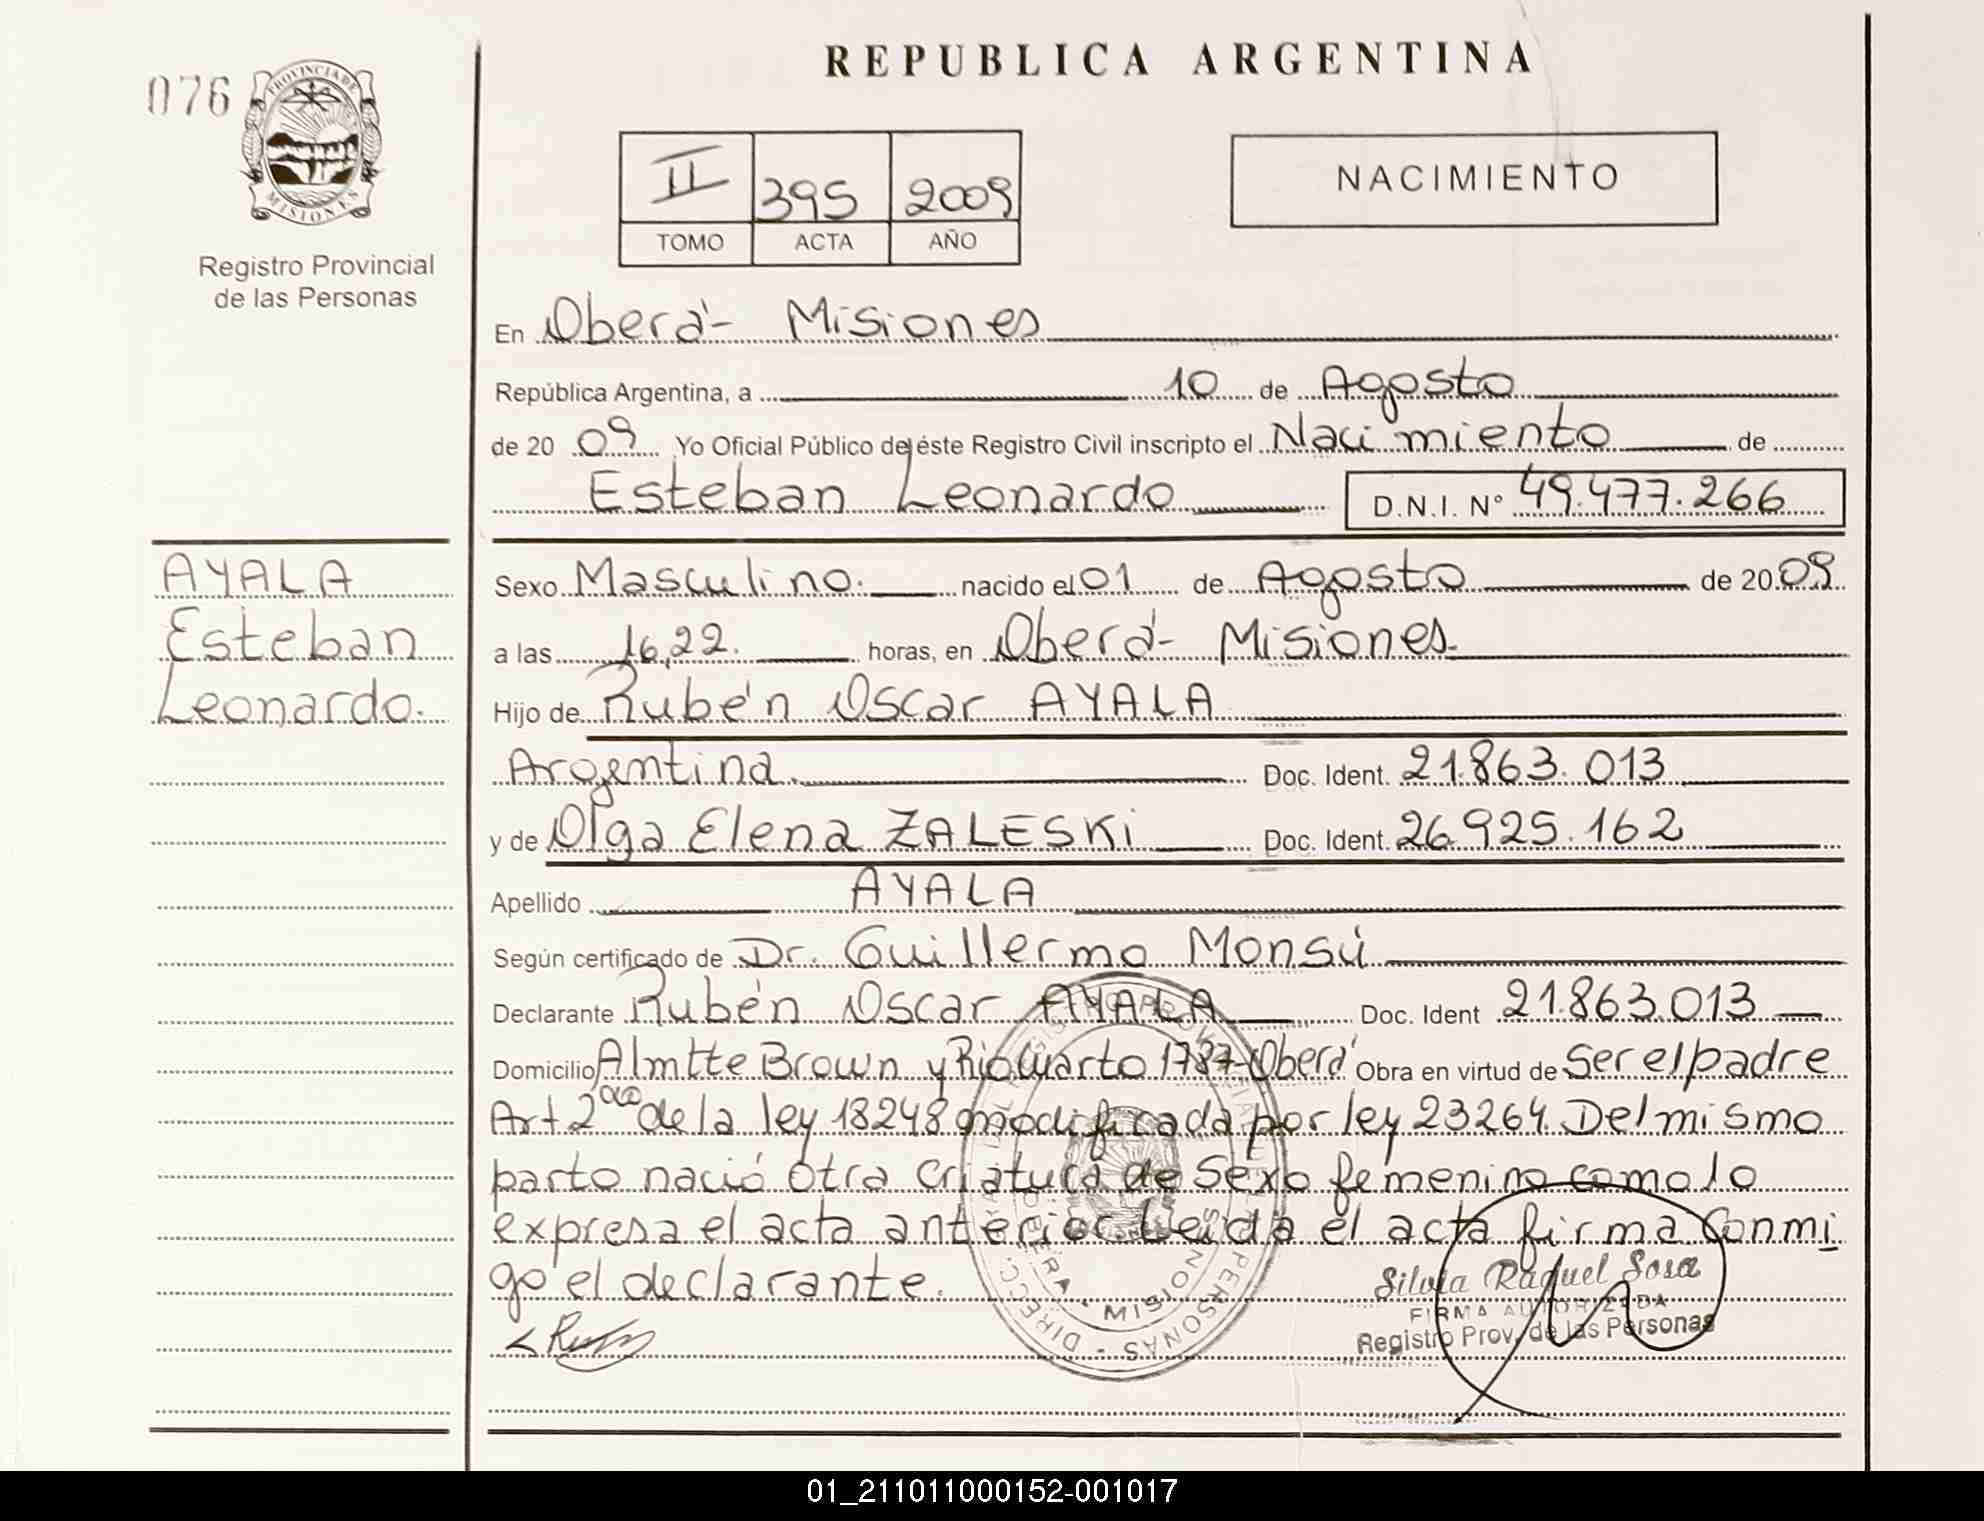 REPUBLICA ARGENTINA
076
PROVINCIA DE
MISIONES
Registro Provincial
de las Personas
II 395 2009
TOMO ACTA AÑO
NACIMIENTO
En Oberá - Misiones
República Argentina, a 10 de Agosto
de 20 09 Yo Oficial Público de éste Registro Civil inscripto el Nacimiento de
Esteban Leonardo D.N.I. N° 49.477.266
AYALA
Esteban
Leonardo.
Sexo Masculino. nacido el 01 de Agosto de 20 09
a las 16,22. horas, en Oberá - Misiones.
Hijo de Rubén Oscar AYALA
Argentina. Doc. Ident. 21.863.013
y de Olga Elena ZALESKi Doc. Ident. 26.925.162
Apellido AYALA
Según certificado de Dr. Guillermo Monsú
Declarante Rubén Oscar AYALA Doc. Ident 21.863.013
Domicilio Almtte Brown y Rio Cuarto 1787-Oberá Obra en virtud de Ser el padre
Art 2do de la ley 18248 modificada por ley 23264. Del mismo
parto nació otra criatura de Sexo femenino como lo
expresa el acta anterior. Leida el acta firma Conmi
go el declarante.
Silvia Raquel Sosa
FIRMA AUTORIZADA
Registro Prov. de las Personas
MISIONES
01_211011000152-001017